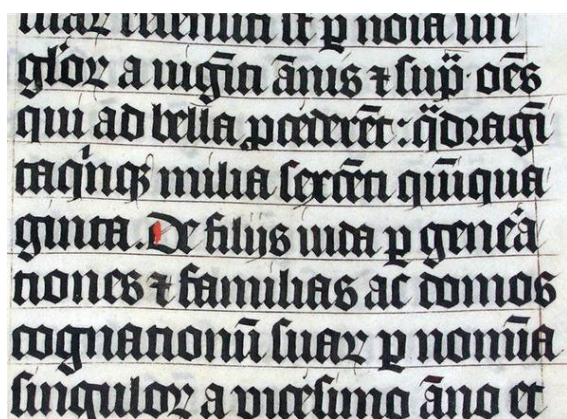 suaꝝ recensiti sūt ꝑ noīa sin
gl'oꝝ a uiginti ānis ⁊ sup̄· oēs
qui ad bella ꝓcederēt : q̈dragī
taq'nqꝫ milia sexcēti qui̅qua
ginta. De filijs iuda ꝑ gene'a
tiones ⁊ familias ac domos
cognationū suaꝝ ꝑ nomīa
singuloꝝ a vicesimo āno et